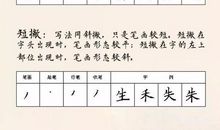 短撇：写法同斜撇，只是笔画较短，短撇在
字头出现时，笔画形态较平；短撇在字的左上
部位出现时，笔画形态较斜。
笔画 起笔 行笔 收笔 字 例
生 禾 失 朱